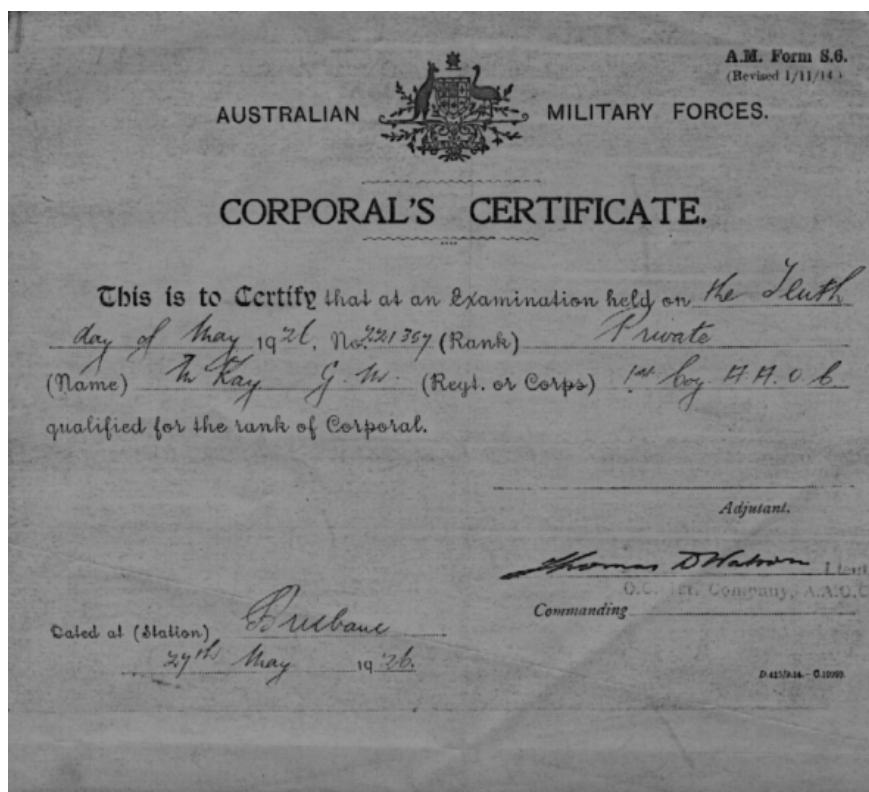 A.M. Form S.6.
(Revised 1/11/14.)
AUSTRALIAN MILITARY FORCES.
CORPORAL'S CERTIFICATE.
This is to Certify that at an Examination held on the Tenth
day of May 1926, No. 221357 (Rank) Private
(Name) McKay G. M. (Regt. or Corps) 1st Coy A. A. O. C.
qualified for the rank of Corporal.
Adjutant.
Thomas D Watson Lieut
O.C. 1st. Company, A.A.O.C
Commanding
Dated at (Station) Brisbane
27th May 1926.